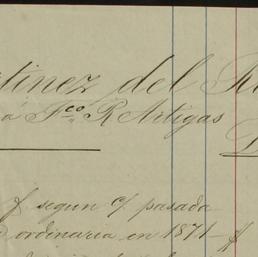 tinez del R
á Fco R Artigas
f segun c/ pasada
ordinaria en 1871